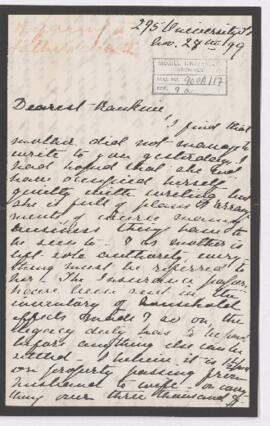 295 University St
Nov. 27th /99
McGILL UNIVERSITY
ARCHIVES
ACC. NO. 90
REF. 9a
Dearest Rankine
I find that
mother did not manage to
write to you yesterday. I
had hoped that she had
have occupied herself
quietly with writing but
she is full of plans & arrange
ments & of course many
business things have to
be seen to - & as mother is
left sole authority every
thing must be referred to
her. The Insurance papers
have been sent in. An
inventory of household
effects made & so on, the
legacy duty has to be paid
before anything else can be
settled - I believe it is
on property passing from
husband to wife - on any
thing over three thousand